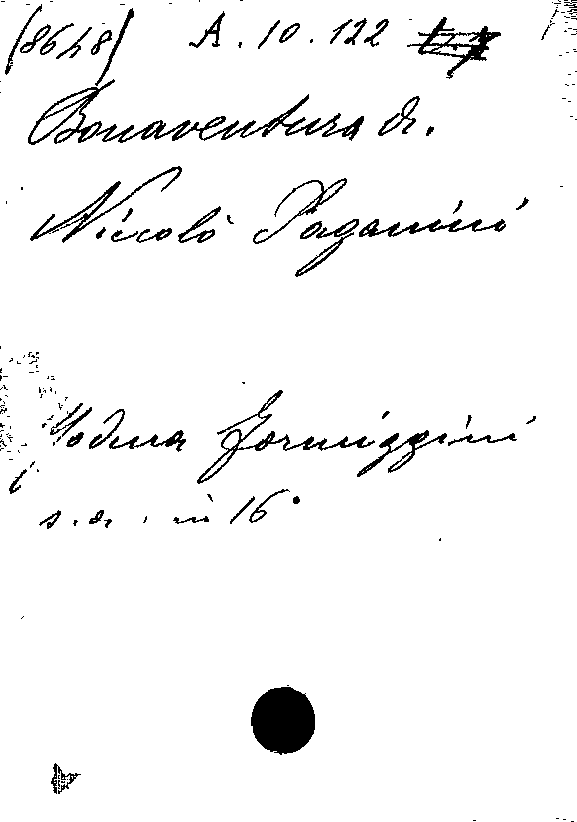 (8648) A. 10. 122
Bonaventura A.
Niccolò Paganini
Modena Formiggini
s. a. in 16°